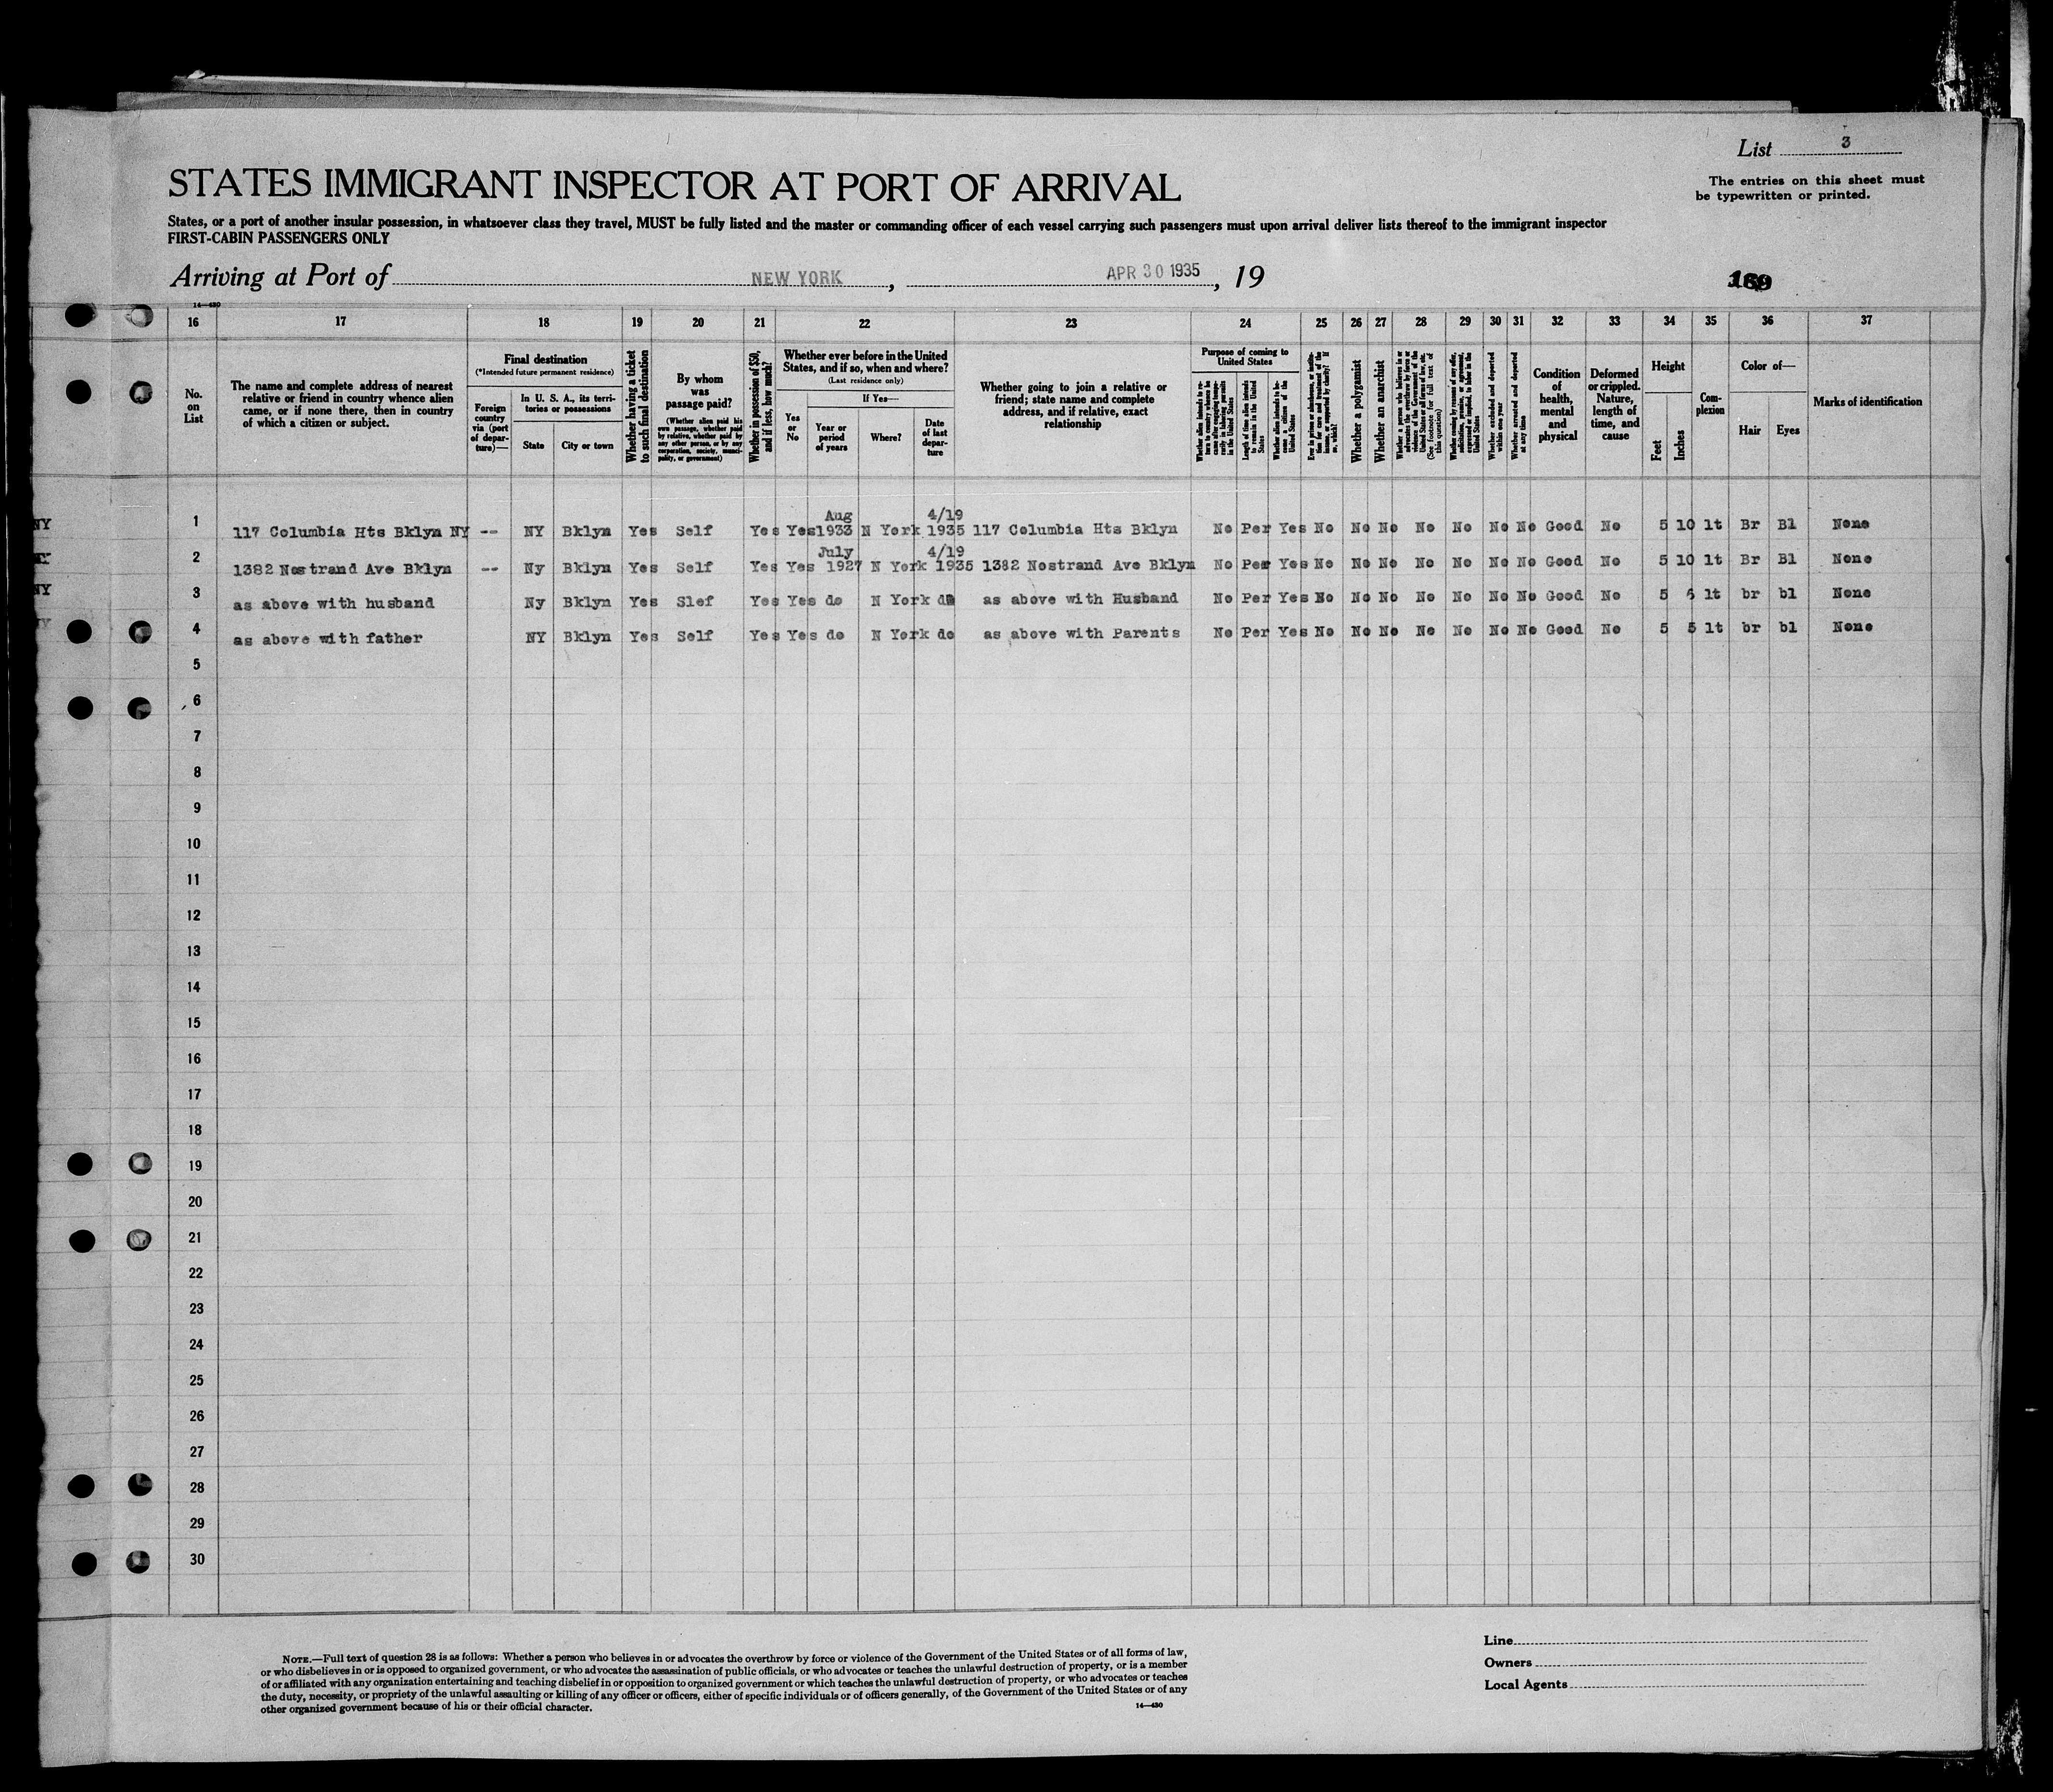 List 3
The entries on this sheet must
be typewritten or printed.
STATES IMMIGRANT INSPECTOR AT PORT OF ARRIVAL
States, or a port of another insular possession, in whatsoever class they travel, MUST be fully listed and the master or commanding officer of each vessel carrying such passengers must upon arrival deliver lists thereof to the immigrant inspector
FIRST-CABIN PASSENGERS ONLY
Arriving at Port of NEW YORK, APR 30 1935, 19
14—430
16 17 18 19 20 21 22 23 24 25 26 27 28 29 30 31 32 33 34 35 36 37
No.
on
List
The name and complete address of nearest
relative or friend in country whence alien
came, or if none there, then in country
of which a citizen or subject.
Final destination
(*Intended future permanent residence)
Foreign
country
via (port
of depar-
ture)—
In U. S. A., its terri-
tories or possessions
State
City or town
Whether having a ticket
to such final destination
By whom
was
passage paid?
(Whether alien paid his
own passage, whether paid
by relative, whether paid by
any other person, or by any
corporation, society, munici-
pality, or government)
Whether in possession of $50,
and if less, how much?
Whether ever before in the United
States, and if so, when and where?
(Last residence only)
Yes
or
No
If Yes—
Year or
period
of years
Where?
Date
of last
depar-
ture
Whether going to join a relative or
friend; state name and complete
address, and if relative, exact
relationship
Purpose of coming to
United States
Length of time alien intends
to remain in the United
States
Whether alien intends to be-
come a citizen of the
United States
Whether a polygamist
Whether an anarchist
(See footnote for full text of
this question)
Whether excluded and deported
within one year
Whether arrested and deported
at any time
Condition
of
health,
mental
and
physical
Deformed
or crippled.
Nature,
length of
time, and
cause
Height
Feet
Inches
Com-
plexion
Color of—
Hair
Eyes
Marks of identification
Aug 4/19
NY 1 117 Columbia Hts Bklyn NY -- NY Bklyn Yes Self Yes Yes 1933 N York 1935 117 Columbia Hts Bklyn No Per Yes No No No No No No No Good No 5 10 lt Br Bl None
July 4/19
2 1382 Nostrand Ave Bklyn -- Ny Bklyn Yes Self Yes Yes 1927 N York 1935 1382 Nostrand Ave Bklyn No Per Yes No No No No No No No Good No 5 10 lt Br Bl None
NY 3 as above with husband Ny Bklyn Yes Slef Yes Yes do N York do as above with Husband No Per Yes No No No No No No No Good No 5 6 lt br bl None
NY 4 as above with father NY Bklyn Yes Self Yes Yes do N York do as above with Parents No Per Yes No No No No No No No Good No 5 5 lt br bl None
5
6
7
8
9
10
11
12
13
14
15
16
17
18
19
20
21
22
23
24
25
26
27
28
29
30
NOTE.—Full text of question 28 is as follows: Whether a person who believes in or advocates the overthrow by force or violence of the Government of the United States or of all forms of law,
or who disbelieves in or is opposed to organized government, or who advocates the assassination of public officials, or who advocates or teaches the unlawful destruction of property, or is a member
of or affiliated with any organization entertaining and teaching disbelief in or opposition to organized government or which teaches the unlawful destruction of property, or who advocates or teaches
the duty, necessity, or propriety of the unlawful assaulting or killing of any officer or officers, either of specific individuals or of officers generally, of the Government of the United States or of any
other organized government because of his or their official character.
14—430
Line
Owners
Local Agents